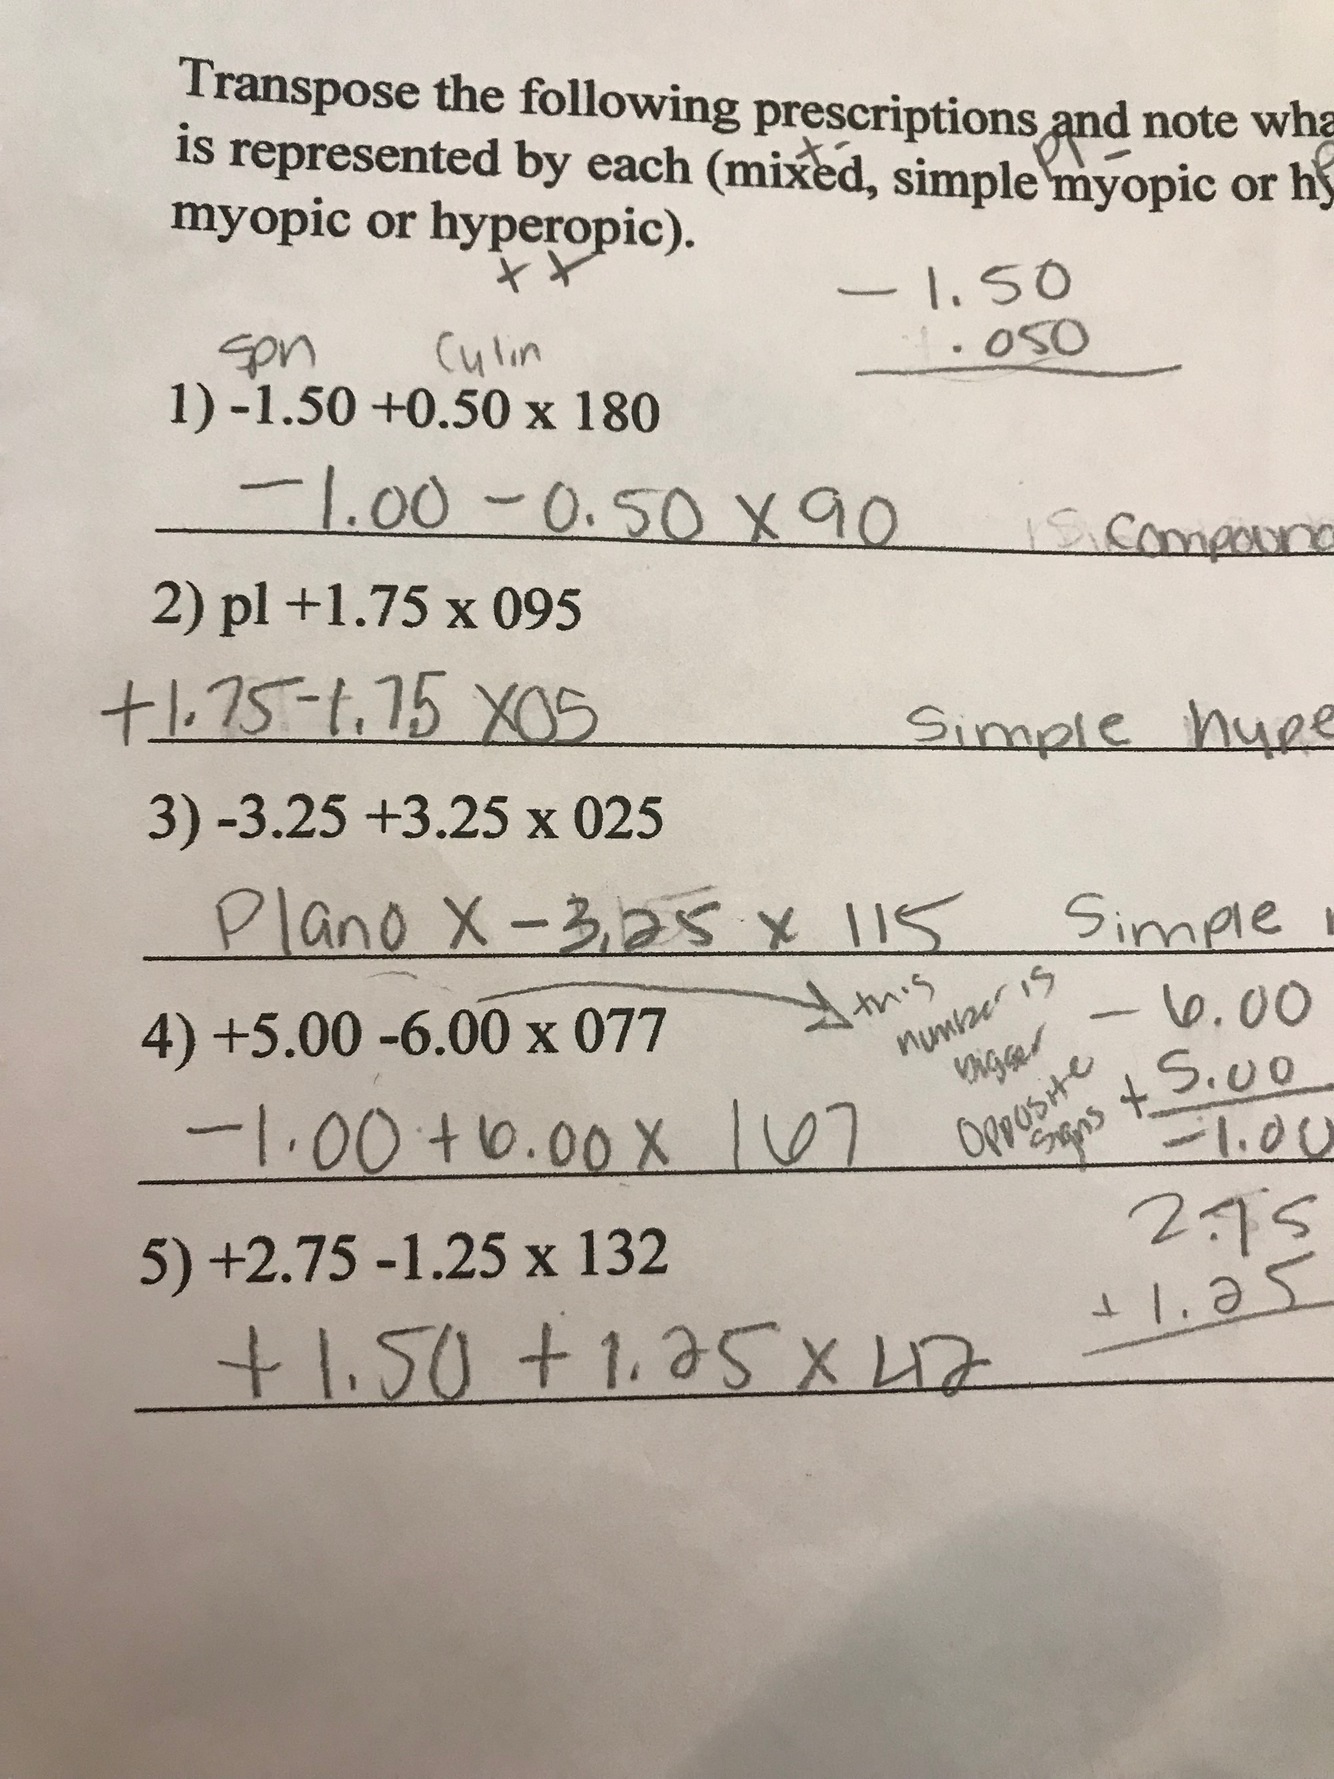 Transpose the following prescriptions and note wha
is represented by each (mixed, simple myopic or hy
+ -
pl -
myopic or hyperopic).
+ +
- 1.50
.050
spn Cylin
1) -1.50 +0.50 x 180
-1.00 - 0.50 x 90
is Compound
2) pl +1.75 x 095
+1.75 -1.75 x05
Simple hype
3) -3.25 +3.25 x 025
Plano x -3.25 x 115
Simple
4) +5.00 -6.00 x 077
this
number is
bigger
opposite
signs
- 6.00
+ 5.00
-1.00
-1.00 + 6.00 x 167
5) +2.75 -1.25 x 132
2.75
+ 1.25
+1.50 +1.25 x 42